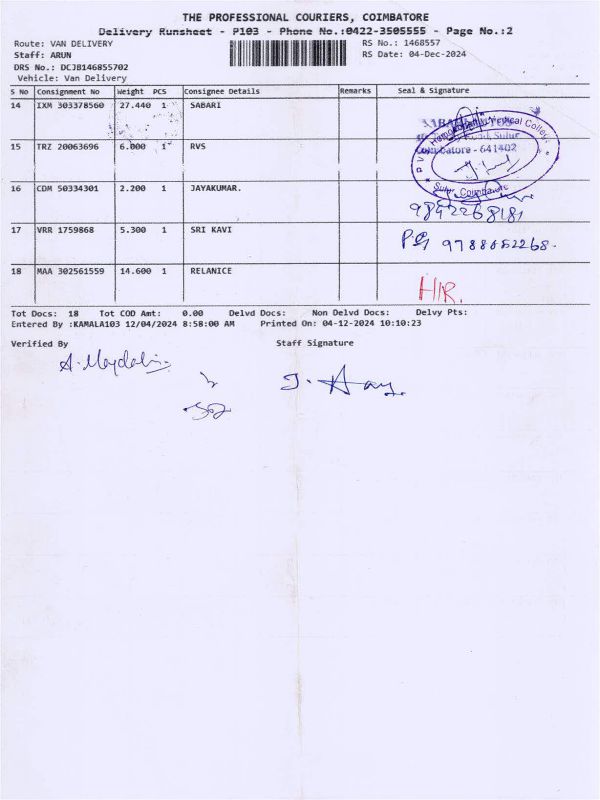 THE PROFESSIONAL COURIERS, COIMBATORE
Delivery Runsheet - P103 - Phone No.:0422-3505555 - Page No.:2
Route: VAN DELIVERY RS No.: 1468557
Staff: ARUN RS Date: 04-Dec-2024
DRS No.: DCJB146855702
Vehicle: Van Delivery
S No Consignment No Weight PCS Consignee Details Remarks Seal & Signature
14 IXM 303378560 27.440 1 SABARI
15 TRZ 20063696 6.000 1 RVS
Coimbatore - 641402
Sulur, Coimbatore
16 CDM 50334301 2.200 1 JAYAKUMAR.
9842268181
17 VRR 1759868 5.300 1 SRI KAVI
9788652268.
18 MAA 302561559 14.600 1 RELANICE
Tot Docs: 18 Tot COD Amt: 0.00 Delvd Docs: Non Delvd Docs: Delvy Pts:
Entered By :KAMALA103 12/04/2024 8:58:00 AM Printed On: 04-12-2024 10:10:23
Verified By Staff Signature